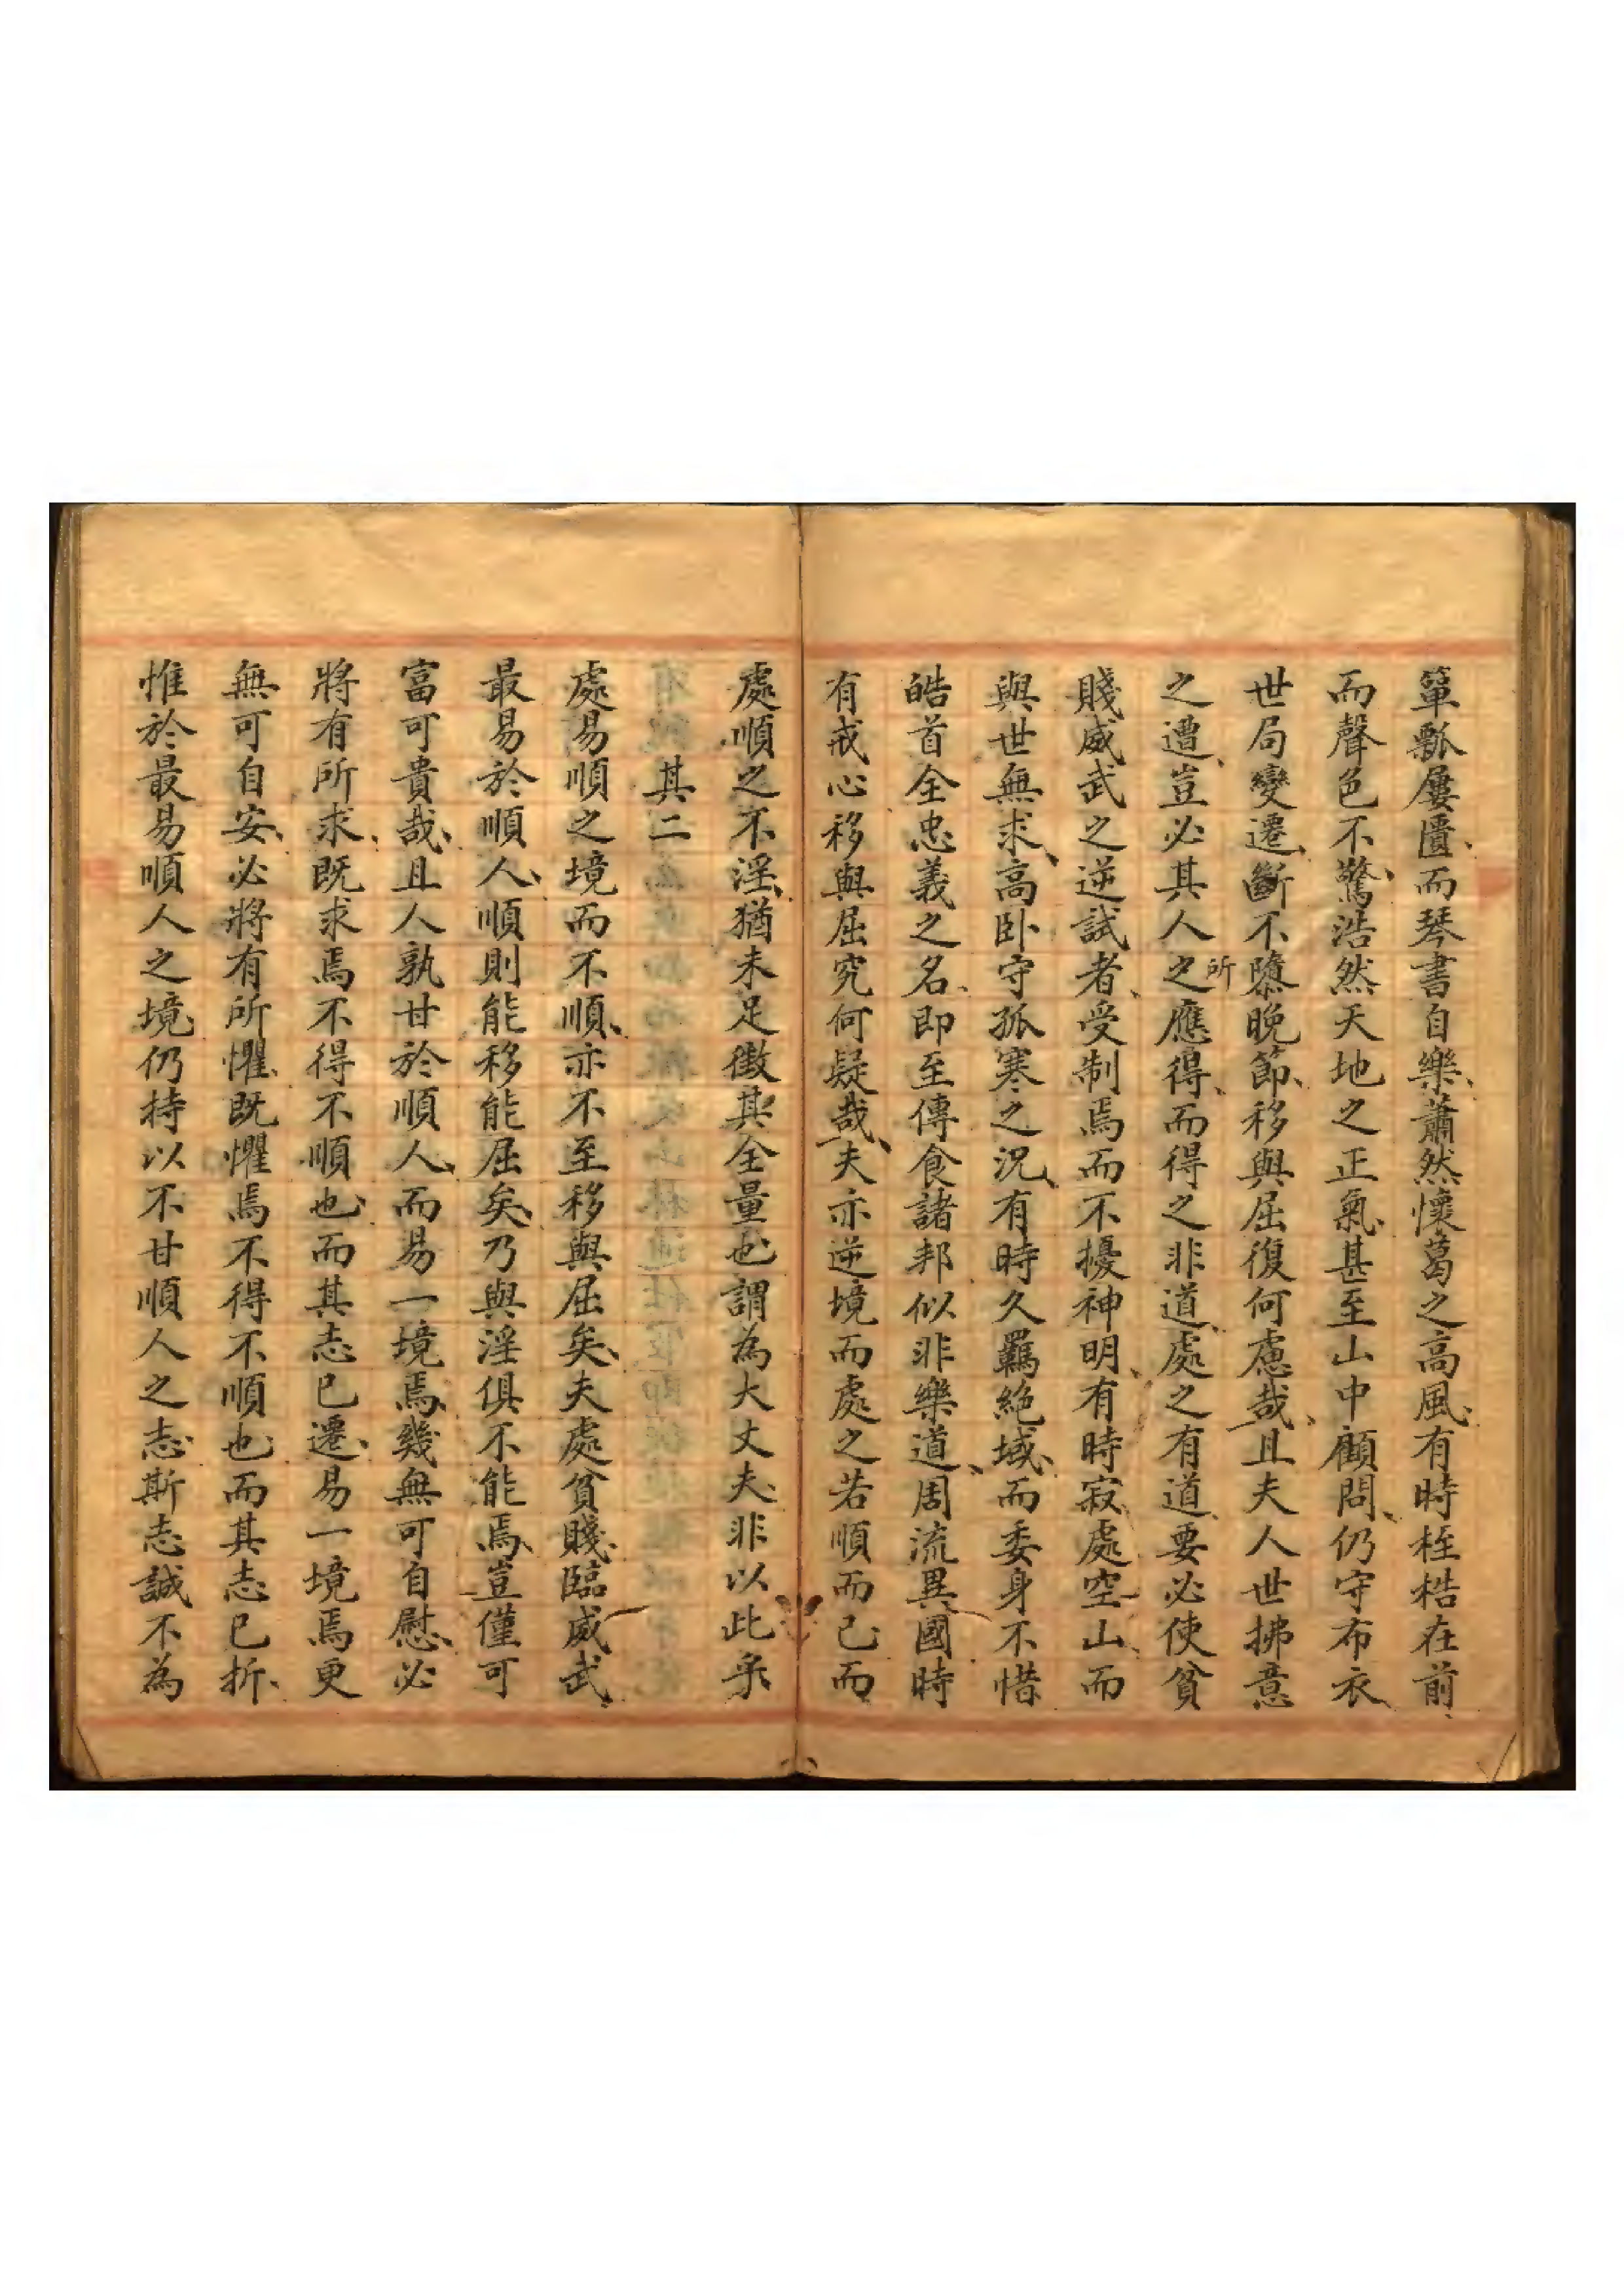 簞瓢屢匱、而琴書自樂、蕭然懷葛之高風、有時桎梏在前、
而聲色不驚、浩然天地之正氣、甚至山中顧問、仍守布衣、
世局變遷、斷不隳晚節、移與屈復何慮哉、且夫人世拂意
之遭、豈必其人之所應得、而得之非道、處之有道、要必使貧
賤威武之逆試者、受制焉而不擾神明、有時寂處空山、而
與世無求、高卧守孤寒之況、有時久羈絶域、而委身不惜
皓首全忠義之名、即至傳食諸邦、似非樂道、周流異國、時
有戒心、移與屈究何疑哉、夫亦逆境而處之若順而已、而
處順之不淫、猶未足徵其全量也、謂為大丈夫、非以此乎
其二
處易順之境而不順、亦不至移與屈矣、夫處貧賤臨威武、
最易於順人、順則能移能屈矣、乃與淫俱不能焉、豈僅可
富可貴哉、且人孰甘於順人、而易一境焉、幾無可自慰、必
將有所求、既求焉不得不順也、而其志已遷、易一境焉更
無可自安、必將有所懼、既懼焉不得不順也、而其志已折、
惟於最易順人之境、仍持以不甘順人之志、斯志誠不為